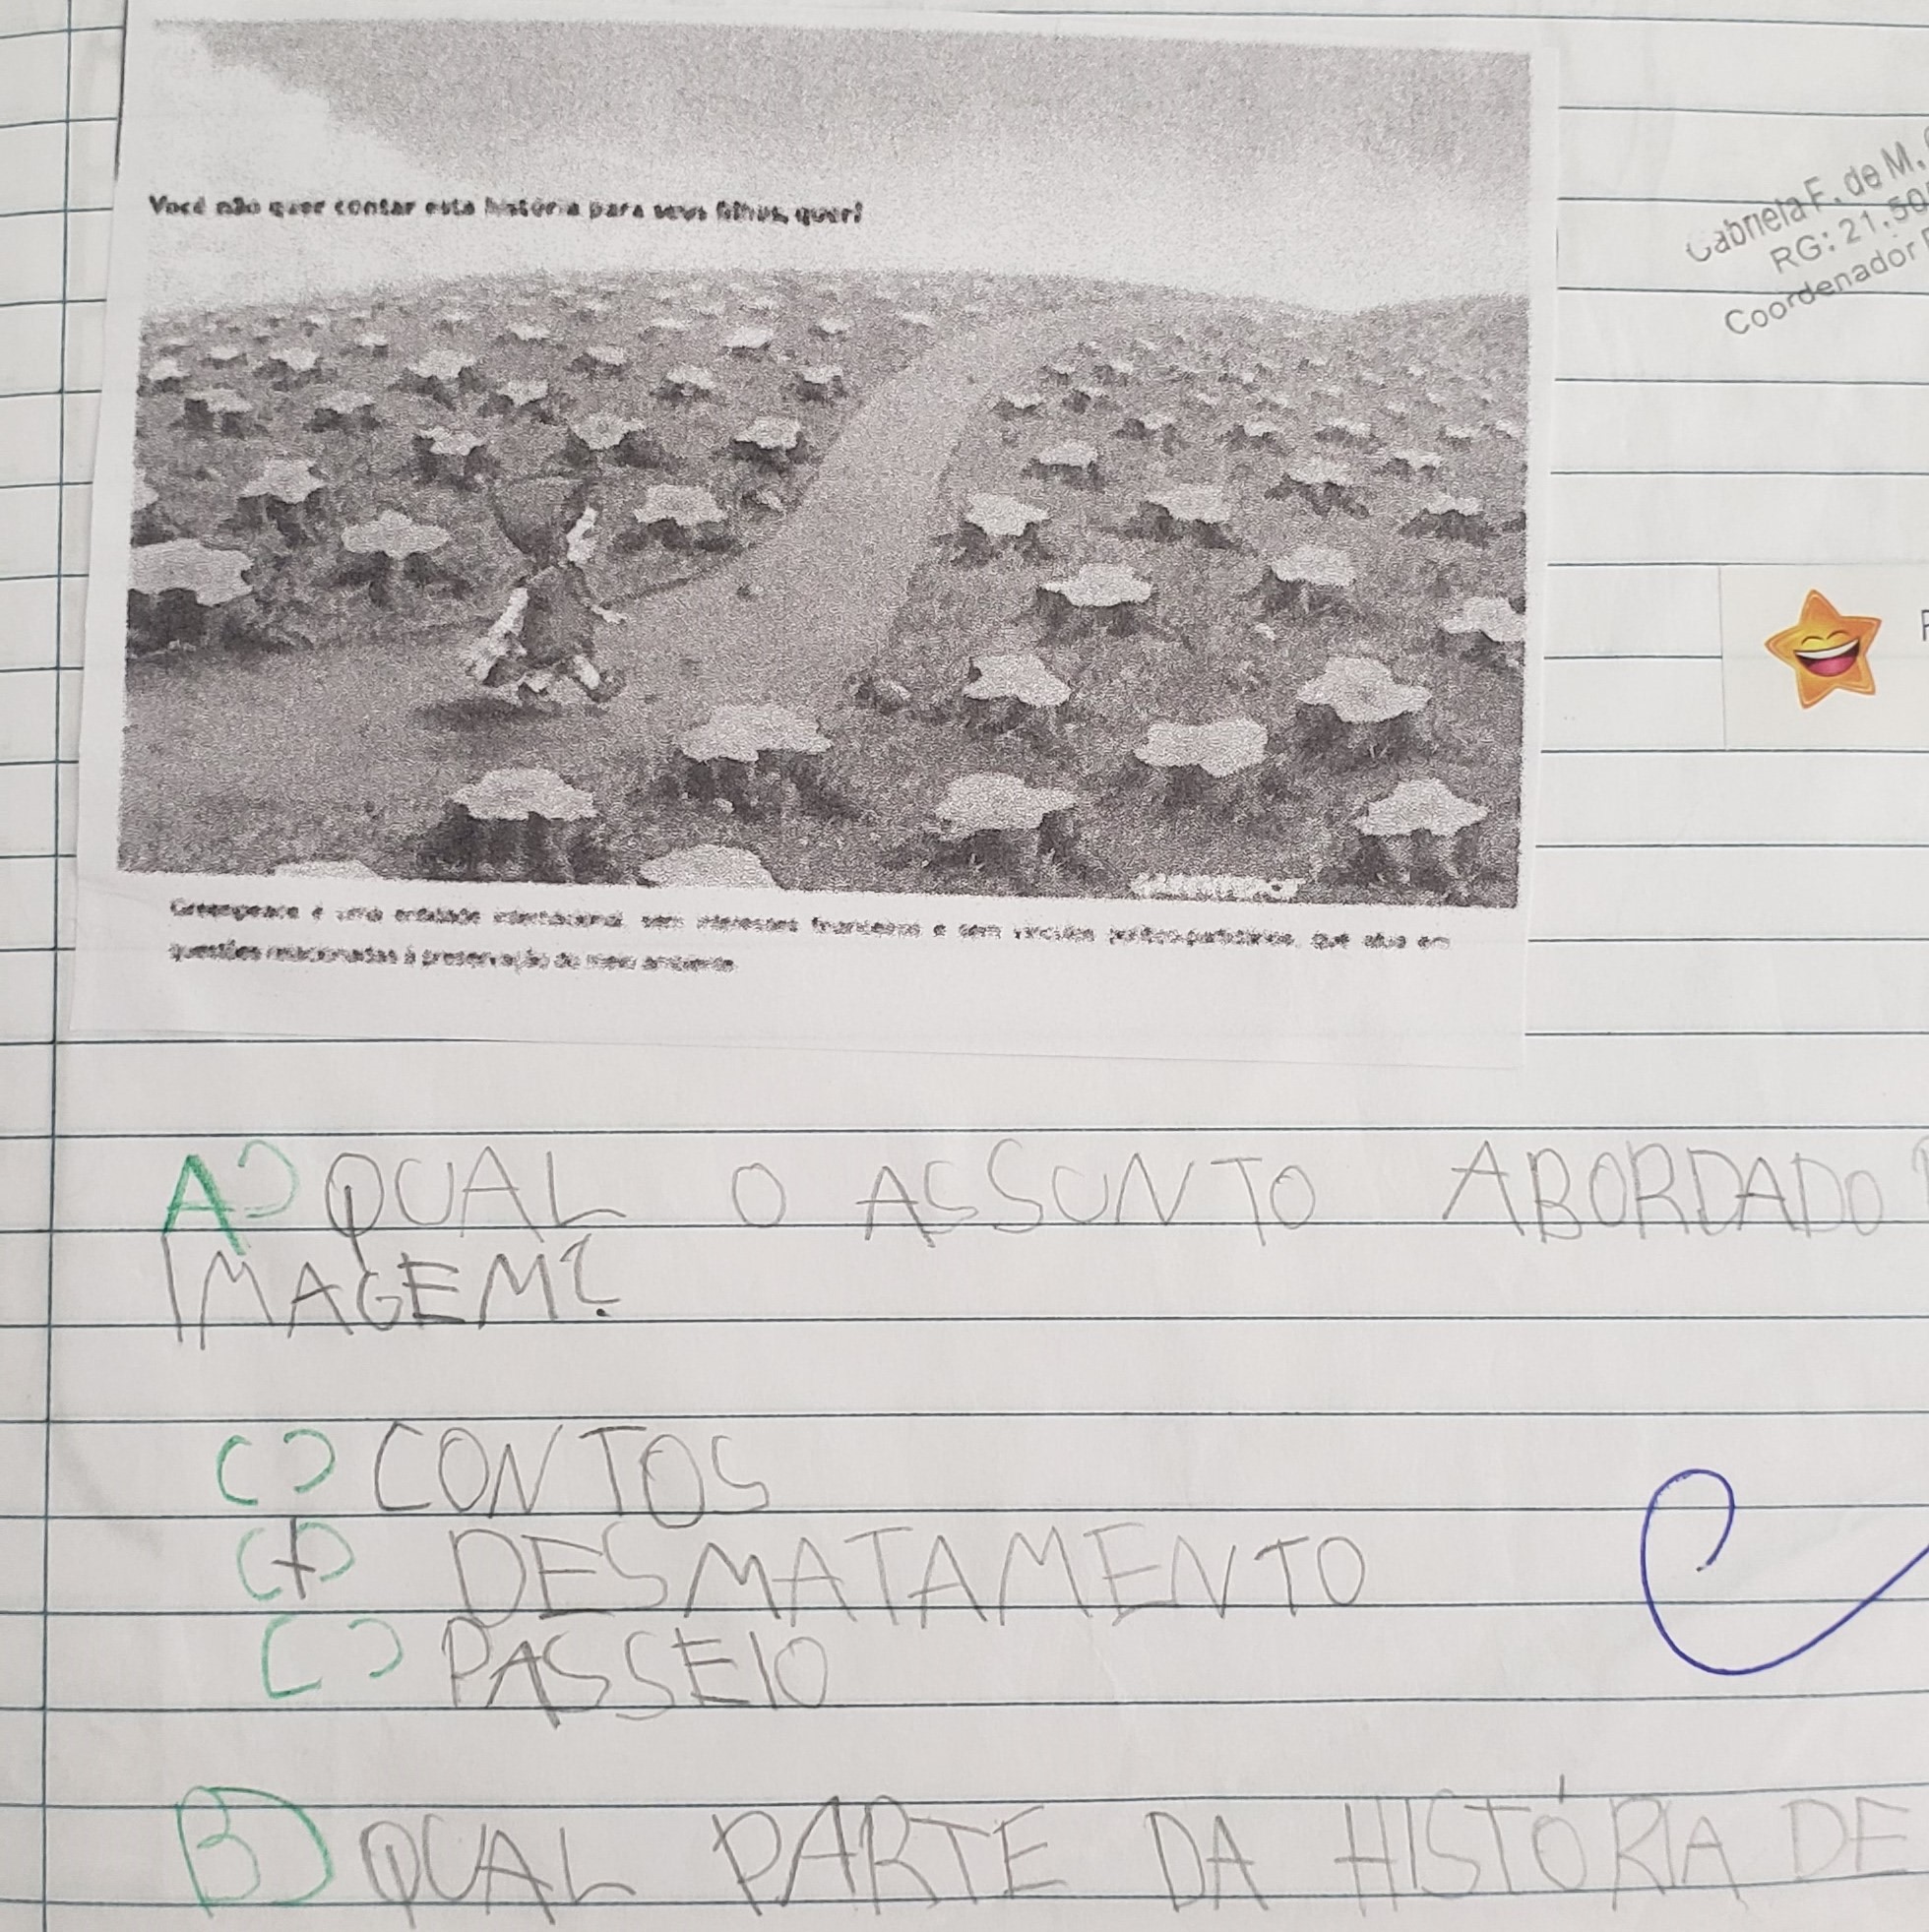 Você não quer contar esta história para seus filhos, quer?
Gabriela F. de M.
RG: 21.50
Coordenador
Greenpeace é uma entidade internacional, sem interesses financeiros e sem vínculos político-partidários, que atua em
questões relacionadas à preservação do meio ambiente.
A) QUAL O ASSUNTO ABORDADO
IMAGEM?
( ) CONTOS
(+) DESMATAMENTO
( ) PASSEIO
B) QUAL PARTE DA HISTÓRIA DE